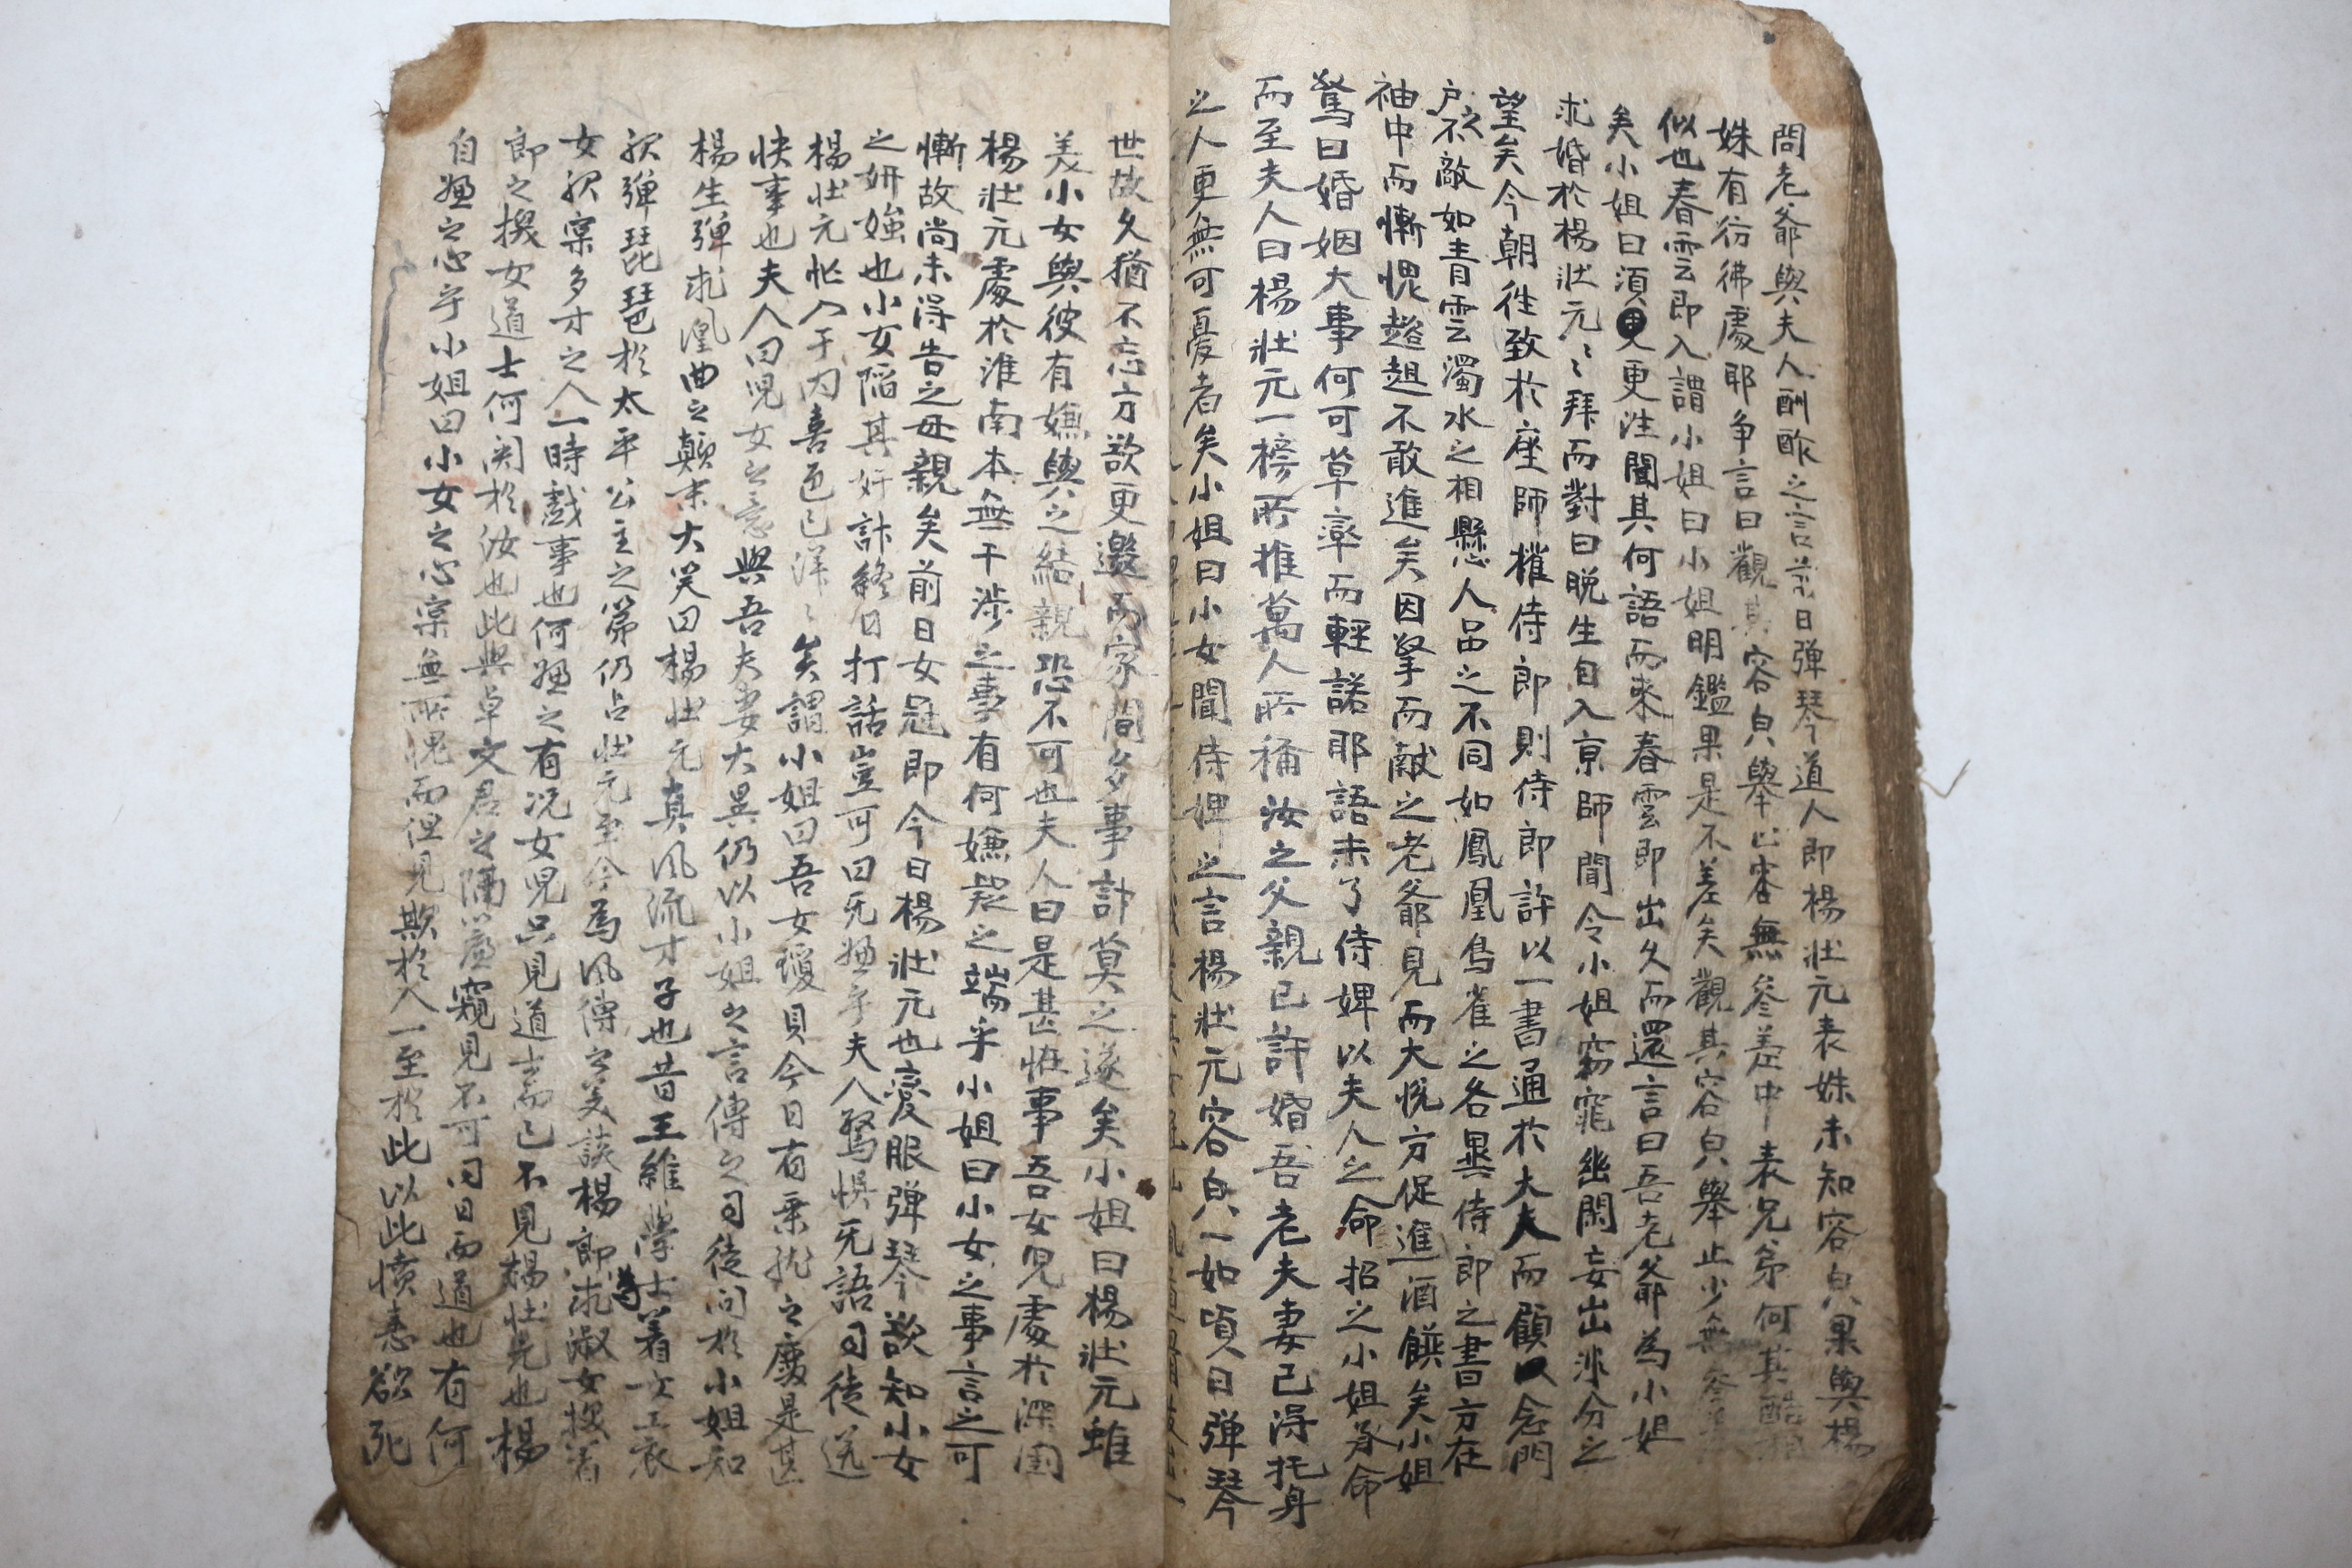 問老爺與夫人酬酢之言前日弹琴道人即楊壯元表姝未知容㒵果與楊
姝有彷彿處耶争言曰觀其容㒵舉止容無參差中表兄弟何其酷相
似也春雲即入謂小姐曰小姐明鑑果是不差矣觀其容㒵舉止少無參差
矣小姐曰須更更往聞其何語而來春雲即出久而還言曰吾老爺為小姐
求婚於楊壯元〻拜而對曰晚生自入京師聞令小姐窈窕幽閑妄出非分之
望矣今朝往致於座師權侍郎則侍郎許以一書通於大夫而顧以念門
户之不敵如青雲濁水之相懸人品之不同如鳳凰烏雀之各異侍郎之書方在
袖中而慚愧趑趄不敢進矣因擎而献之老爺見而大悅方促進酒饌矣小姐
驚曰婚姻大事何可草率而輕諾耶語未了侍婢以夫人之命招之小姐承命
而至夫人曰楊壯元一榜所推萬人所稱汝之父親已許婚吾老夫妻已得托身
之人更無可憂者矣小姐曰小女聞侍婢之言楊壯元容㒵一如頃日弹琴
世故久猶不忘方欲更邀而家間多事計莫之遂矣小姐曰楊壯元雖
美小女與彼有嫌與之結親恐不可也夫人曰是甚恠事吾女児處於深閨
楊壯元處於淮南本無干涉之事有何嫌疑之端乎小姐曰小女之事言之可
慚故尚未得告之母親矣前日女冠即今日楊壯元也變服弹琴欲知小女
之妍媸也小女陷其奸計終日打話豈可曰无嫌乎夫人驚惧无語司徒送
楊壯元忙入于内喜色已洋〻矣謂小姐曰吾女瓊貝今日有乗龍之慶是甚
快事也夫人曰児女之意與吾夫妻大異仍以小姐之言傳之司徒問於小姐知
楊生弹求凰曲之顛末大笑曰楊壯元真风流才子也昔王維學士着女工衣
服弹琵琶於太平公主之第仍占壯元至今為风傳之美談楊郎為求淑女換着
女服寔多才之人一時戱事也何嫌之有况女児只見道士而已不見楊壯元也楊
郎之換女道士何関於汝也此與卓文君之隔簾窺見不可同日而道也有何
自嫌之心乎小姐曰小女之心寔無所愧而但見欺於人一至於此以此憤恚欲死